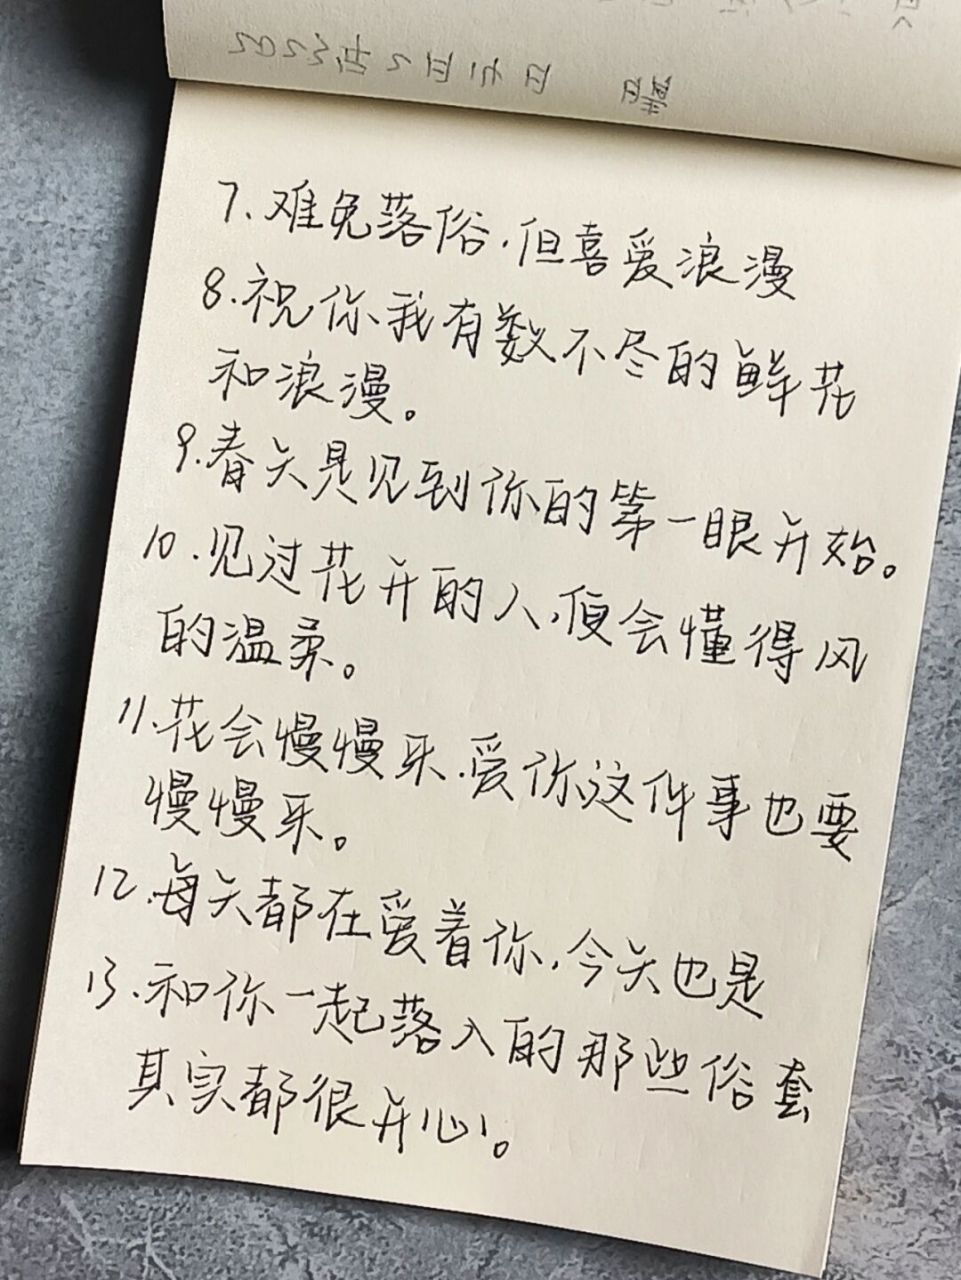 7.难免落俗,但喜爱浪漫
8.祝你我有数不尽的鲜花
和浪漫。
9.春天是见到你的第一眼开始。
10.见过花开的人,便会懂得风
的温柔。
11.花会慢慢来.爱你这件事也要
慢慢来。
12.每天都在爱着你,今天也是
13.和你一起落入的那些俗套
其实都很开心。